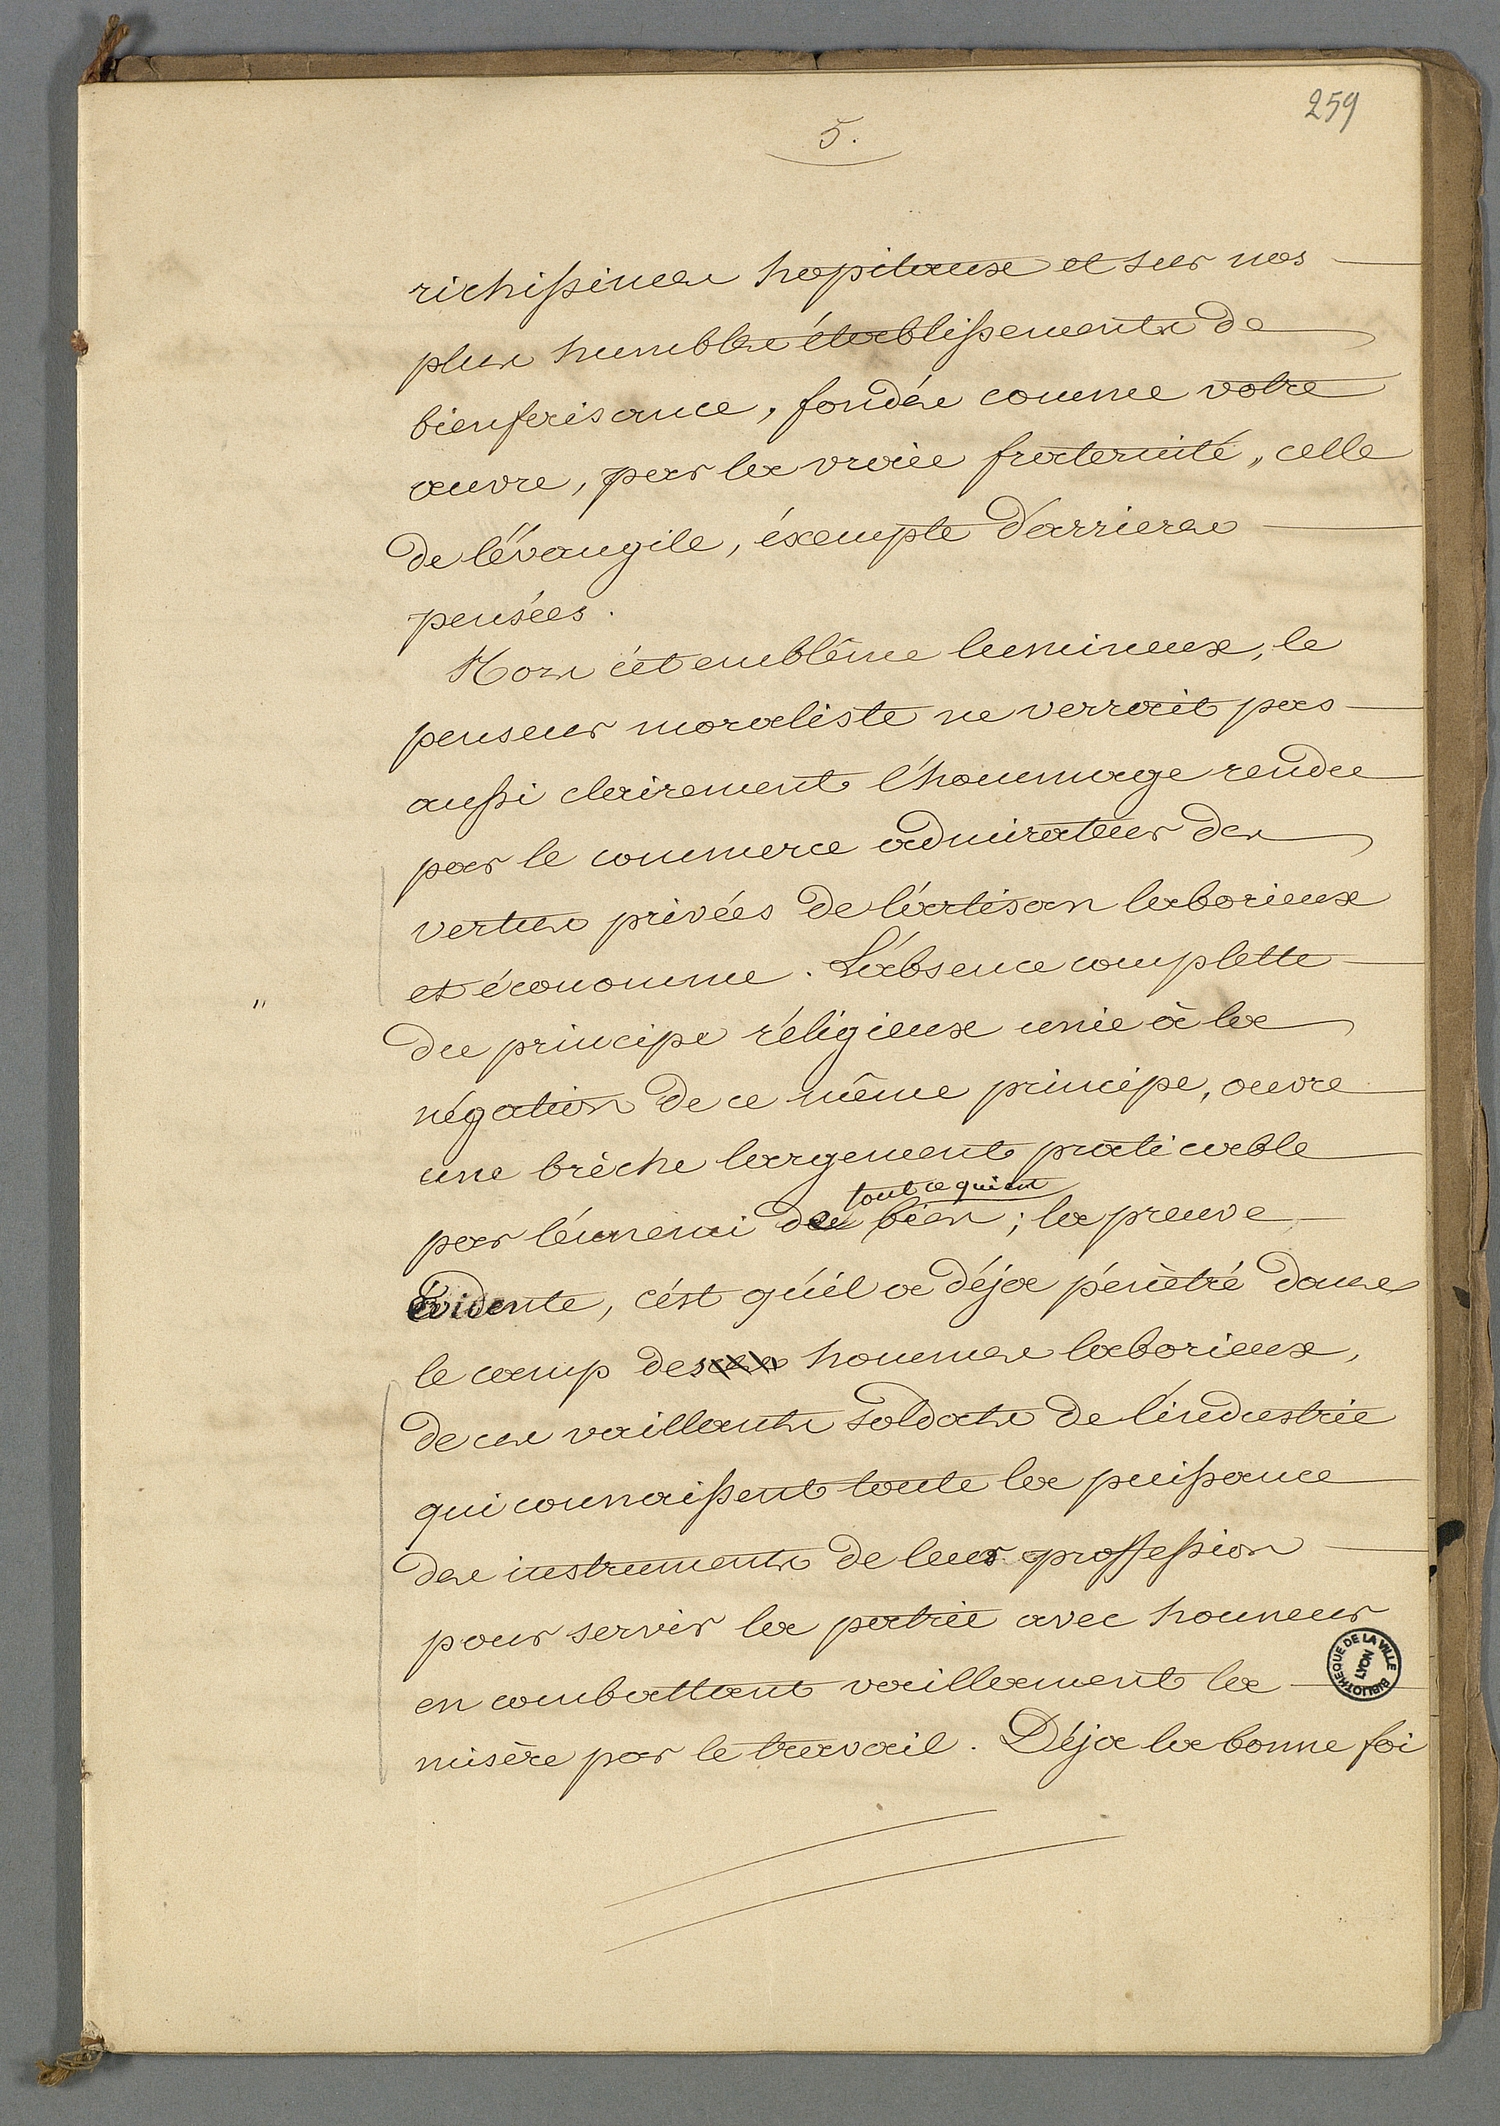 259
5.
richissimes hopitaux et sur nos
plus humbles établissements de
bienfaisance, fondés comme votre
œuvre, par la vraie fraternité, celle
de lévangile, éxempte d'arrieres
pensées.
Hors cét emblême lumineux, le
penseur moraliste ne verrait pas
aussi clairement l'hommage rendu
par le commerce admirateur des
vertus privées de l'artisan laborieux
et économme. L'absence complette
du principe réligieux unie à la
négation de ce même principe, ouvre
une brèche largement praticable
tout ce qui est
par l'énnemi de bien ; la preuve
Évidente, c'ést qu'il a déja pénètré dans
le camp des hommes laborieux,
de ces vaillants soldats de l'industrie
qui connaissent toute la puissance
des instruments de leur proffession
pour servir la patrie avec honneur
en combattant vaillament la
misère par le travail. Déja la bonne foi
"
BIBLIOTHEQUE DE LA VILLE
LYON